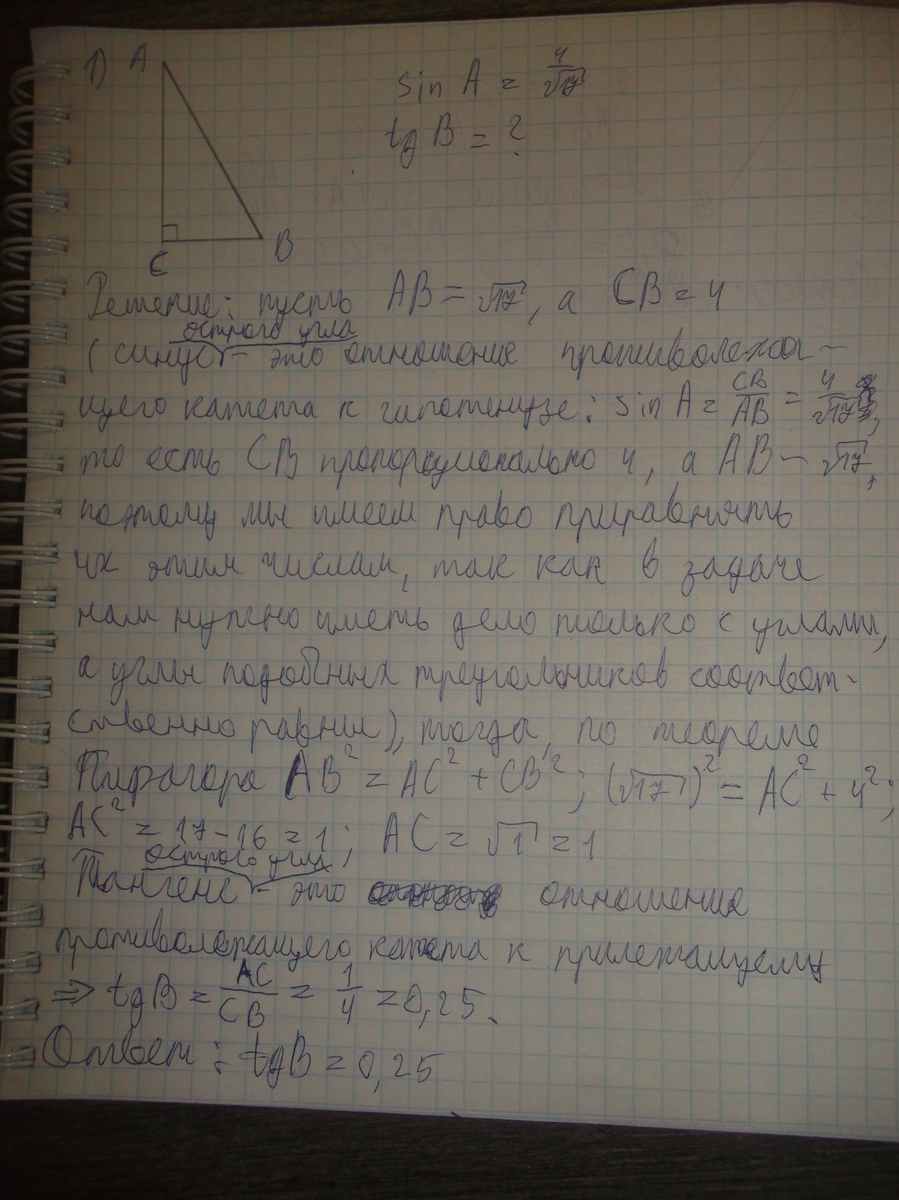 1) A
sin A = 4/√17
tg B = ?
C B
Решение: пусть AB = √17, а CB = 4
острого угла
(синус – это отношение противолежа-
щего катета к гипотенузе: sin A = CB/AB = 4/√17,
то есть CB пропорционально 4, а AB – √17,
поэтому мы имеем право приравнять
их этим числам, так как в задаче
нам нужно иметь дело только с углами,
а углы подобных треугольников соответ-
ственно равны), тогда, по теореме
Пифагора AB² = AC² + CB²; (√17)² = AC² + 4²;
AC² = 17 – 16 = 1; AC = √1 = 1
острого угла
Тангенс – это отношение
противолежащего катета к прилежащему
⇒ tg B = AC/CB = 1/4 = 0,25.
Ответ: tg B = 0,25